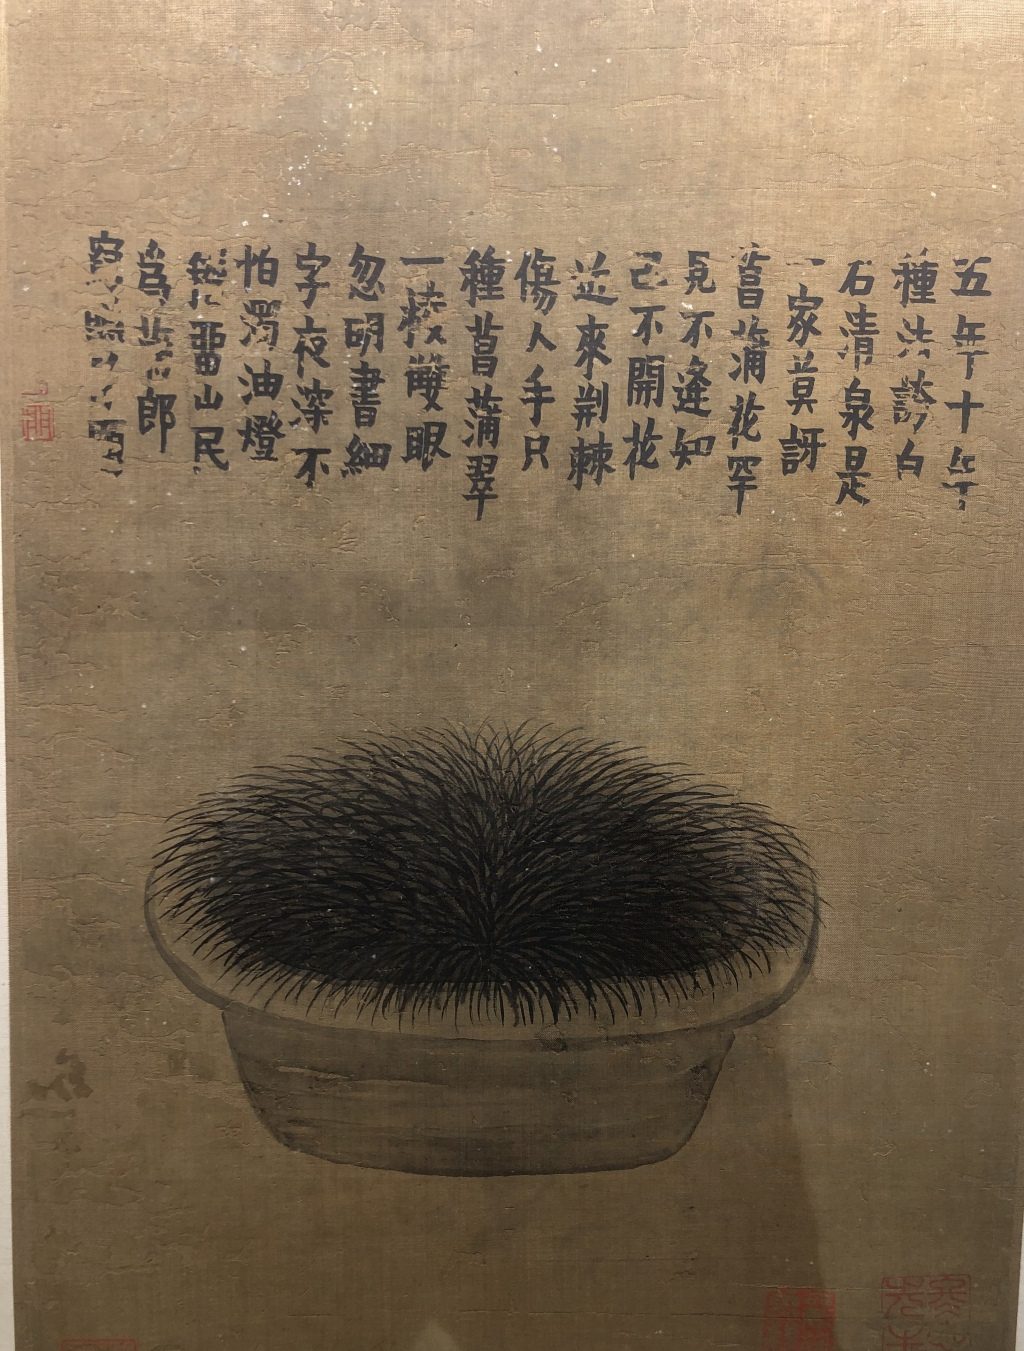 五年十年
種法誇白
石清泉是
一家莫訝
菖蒲花罕
見不逢知
己不開花
並來荆棘
傷人手只
種菖蒲翠
一稜雙眼
忽明書細
字夜深不
怕濁油燈
畱山民
爲郎